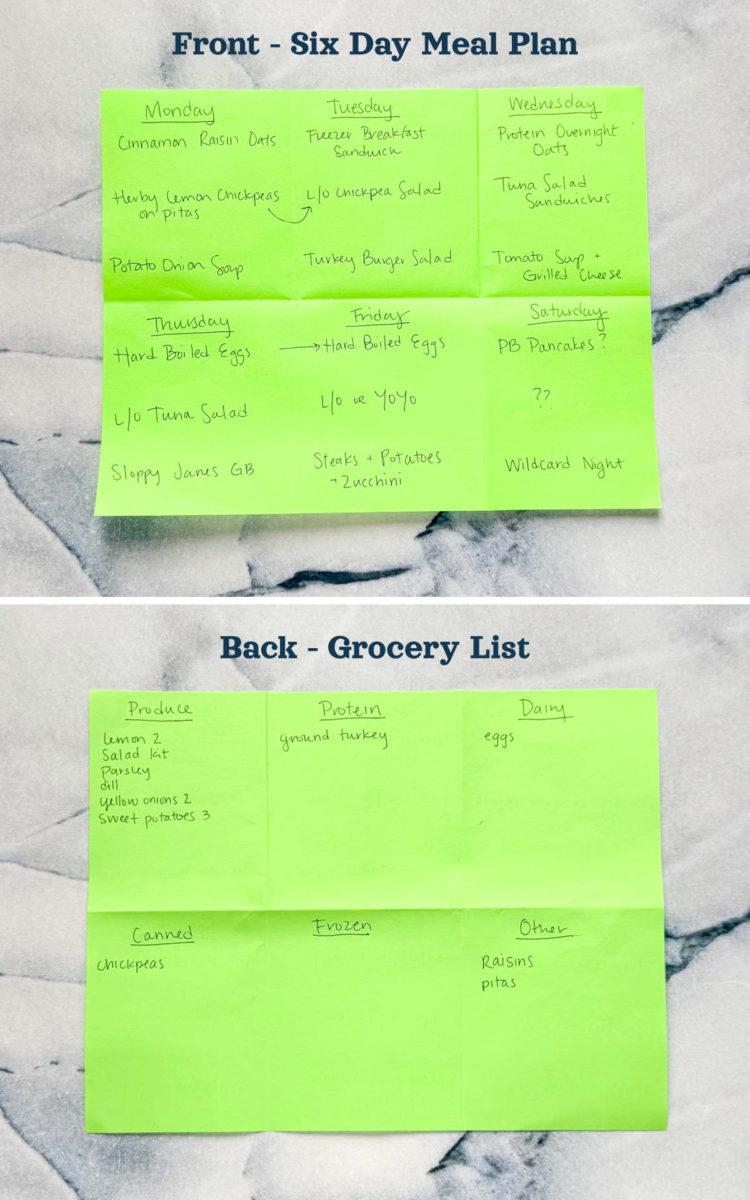 Front - Six Day Meal Plan
Monday
Cinnamon Raisin Oats
Herby Lemon Chickpeas
on pitas
Potato Onion Soup
Tuesday
Freezer Breakfast
Sandwich
L/o Chickpea Salad
Turkey Burger Salad
Wednesday
Protein Overnight
Oats
Tuna Salad
Sandwiches
Tomato Soup +
Grilled Cheese
Thursday
Hard Boiled Eggs
L/o Tuna Salad
Sloppy Janes GB
Friday
Hard Boiled Eggs
L/o or YOYO
Steaks + Potatoes
+ Zucchini
Saturday
PB Pancakes?
??
Wildcard Night
Back - Grocery List
Produce
Lemon 2
Salad kit
Parsley
dill
yellow onions 2
sweet potatoes 3
Protein
ground turkey
Dairy
eggs
Canned
chickpeas
Frozen
Other
Raisins
pitas